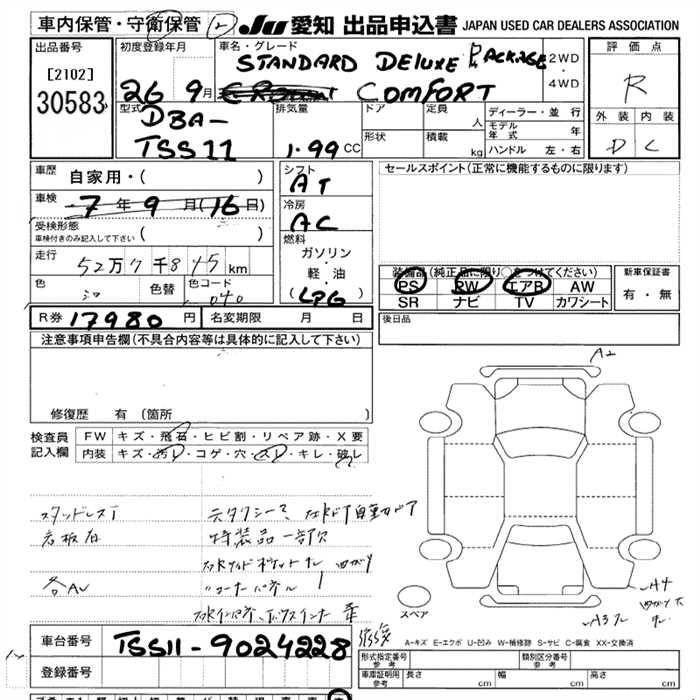 車内保管・守衛保管 2 JU 愛知 出品申込書 JAPAN USED CAR DEALERS ASSOCIATION
出品番号
[2102]
30583
初度登録年月
26 9月
車名・グレード
STANDARD DELUXE PACKAGE
COMFORT
2WD
・
4WD
評価点
R
外装 内装
D C
型式
DBA-
TSS11
排気量
1.99 CC
ドア
形状
定員 人
積載 kg
ディーラー・並行
モデル年式 年
ハンドル 左・右
車歴 自家用・( )
車検 7年9月(16日)
受検形態
車検付きのみ記入して下さい ( )
走行 52万7千845km
色 色替 色コード
040
シフト
AT
冷房
AC
燃料
ガソリン
・
軽油
(LPG)
セールスポイント(正常に機能するものに限ります)
装備品(純正品に限り○をつけてください)
PS PW エアB AW
SR ナビ TV カワシート
新車保証書
有・無
R券 17980円 名変期限 月 日
後日品
注意事項申告欄(不具合内容等は具体的に記入して下さい)
修復歴 有 (箇所
検査員
記入欄
FW キズ・飛石・ヒビ割・リペア跡・X要
内装 キズ・汚れ・コゲ・穴・スレ・キレ・破れ
スタッドレスT
看板有
元タクシー
特装品一部欠
A2
A4
スペア
A-キズ E-エクボ U-凹み W-補修跡 S-サビ C-腐食 XX-交換済
車台番号 TSS11-9024228
登録番号
形式指定番号
参考
類別区分番号
参考
車庫証明用
参考
長さ cm 幅 cm 高さ cm